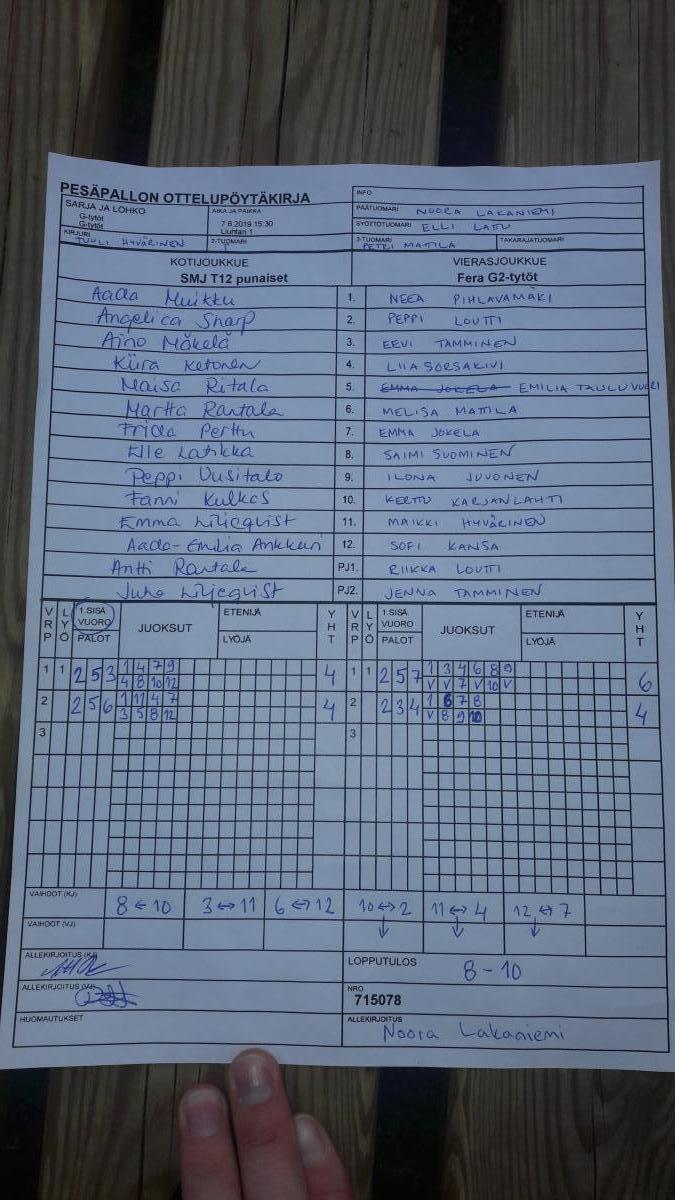 PESÄPALLON OTTELUPÖYTÄKIRJA
INFO
SARJA JA LOHKO
G-tytöt
G-tytöt
AIKA JA PAIKKA
7.6.2019 15:30
Liuhtari 1
PÄÄTUOMARI NOORA LAKANIEMI
SYÖTTÖTUOMARI ELLI LATU
KIRJURI TUULI HYVÄRINEN
2-TUOMARI
3-TUOMARI PETRI MATTILA
TAKARAJATUOMARI
KOTIJOUKKUE
SMJ T12 punaiset
VIERASJOUKKUE
Fera G2-tytöt
Aada Muikku 1. NEEA PIHLAVAMÄKI
Angelica Sharp 2. PEPPI LOUTTI
Aino Mäkelä 3. EEVI TAMMINEN
Kiira Ketonen 4. LIIA SORSAKIVI
Maisa Ritala 5. EMMA JOKELA EMILIA TAULUVUORI
Martta Rantala 6. MELISA MATTILA
Frida Perttu 7. EMMA JOKELA
Elle Latikka 8. SAIMI SUOMINEN
Peppi Uusitalo 9. ILONA JUVONEN
Fanni Kulkas 10. KERTTU KARJANLAHTI
Emma Liljeqvist 11. MAIKKI HYVÄRINEN
Aada-Emilia Ankkuri 12. SOFI KANSA
Antti Rantala PJ1. RIIKKA LOUTTI
Juha Liljeqvist PJ2. JENNA TAMMINEN
VRP LYÖ 1.SISÄ VUORO PALOT JUOKSUT ETENIJÄ LYÖJÄ YHT
VRP LYÖ 1.SISÄ VUORO PALOT JUOKSUT ETENIJÄ LYÖJÄ YHT
1 1 2 5 3 1 4 7 9 4 1 1 2 5 7 1 3 4 6 8 9 6
4 8 10 12 V V 7 V 10 V
2 2 5 6 1 11 4 7 4 2 2 3 4 1 6 7 8 4
3 5 8 12 V 8 9 10
3 3
VAIHDOT (KJ) 8 ← 10 3 ↔ 11 6 ↔ 12 10 ↔ 2 11 ↔ 4 12 ↔ 7
VAIHDOT (VJ) ↓ ↓ ↓
ALLEKIRJOITUS (KJ)
LOPPUTULOS 8 - 10
ALLEKIRJOITUS (VJ)
NRO
715078
HUOMAUTUKSET
ALLEKIRJOITUS
Noora Lakaniemi